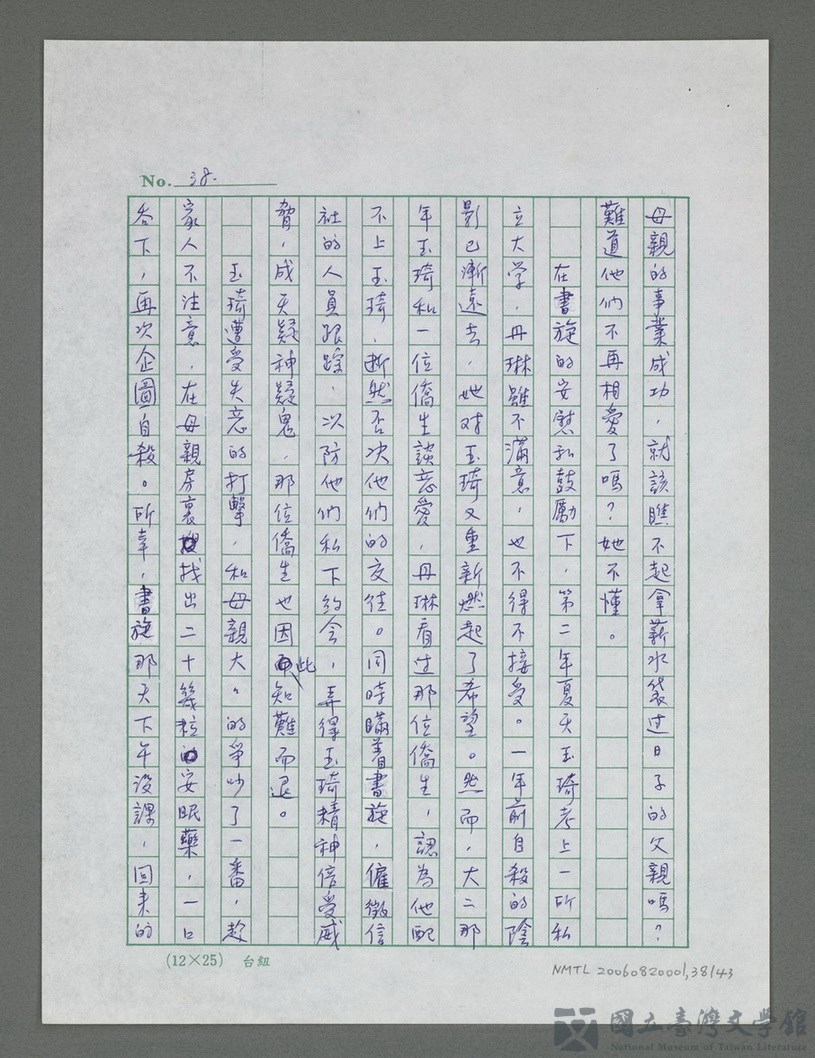 No. 38.
母親的事業成功，就該瞧不起拿薪水袋过日子的父親嗎？
難道他们不再相愛了嗎？她不懂。
在書旋的安慰和鼓勵下，第二年夏天玉琦考上一所私
立大学，丹琳雖不滿意，也不得不接受。一年前自殺的陰
影已漸遠去，她对玉琦又重新燃起了希望。然而，大二那
年玉琦和一位僑生談恋愛，丹琳看过那位僑生，認為他配
不上玉琦，断然否决他们的交往。同時瞞着書旋，僱徵信
社的人員跟踪，以防他们私下約会，弄得玉琦精神倍受威
脅，成天疑神疑鬼，那位僑生也因此知難而退。
玉琦遭受失恋的打擊，和母親大大的爭吵了一番，趁
家人不注意，在母親房裏找出二十幾粒安眠藥，一口
吞下，再次企圖自殺。所幸，書旋那天下午沒課，回来的
(12×25) 台紐
NMTL 20060820001,38/43
國立臺灣文学館
National Museum of Taiwan Literature